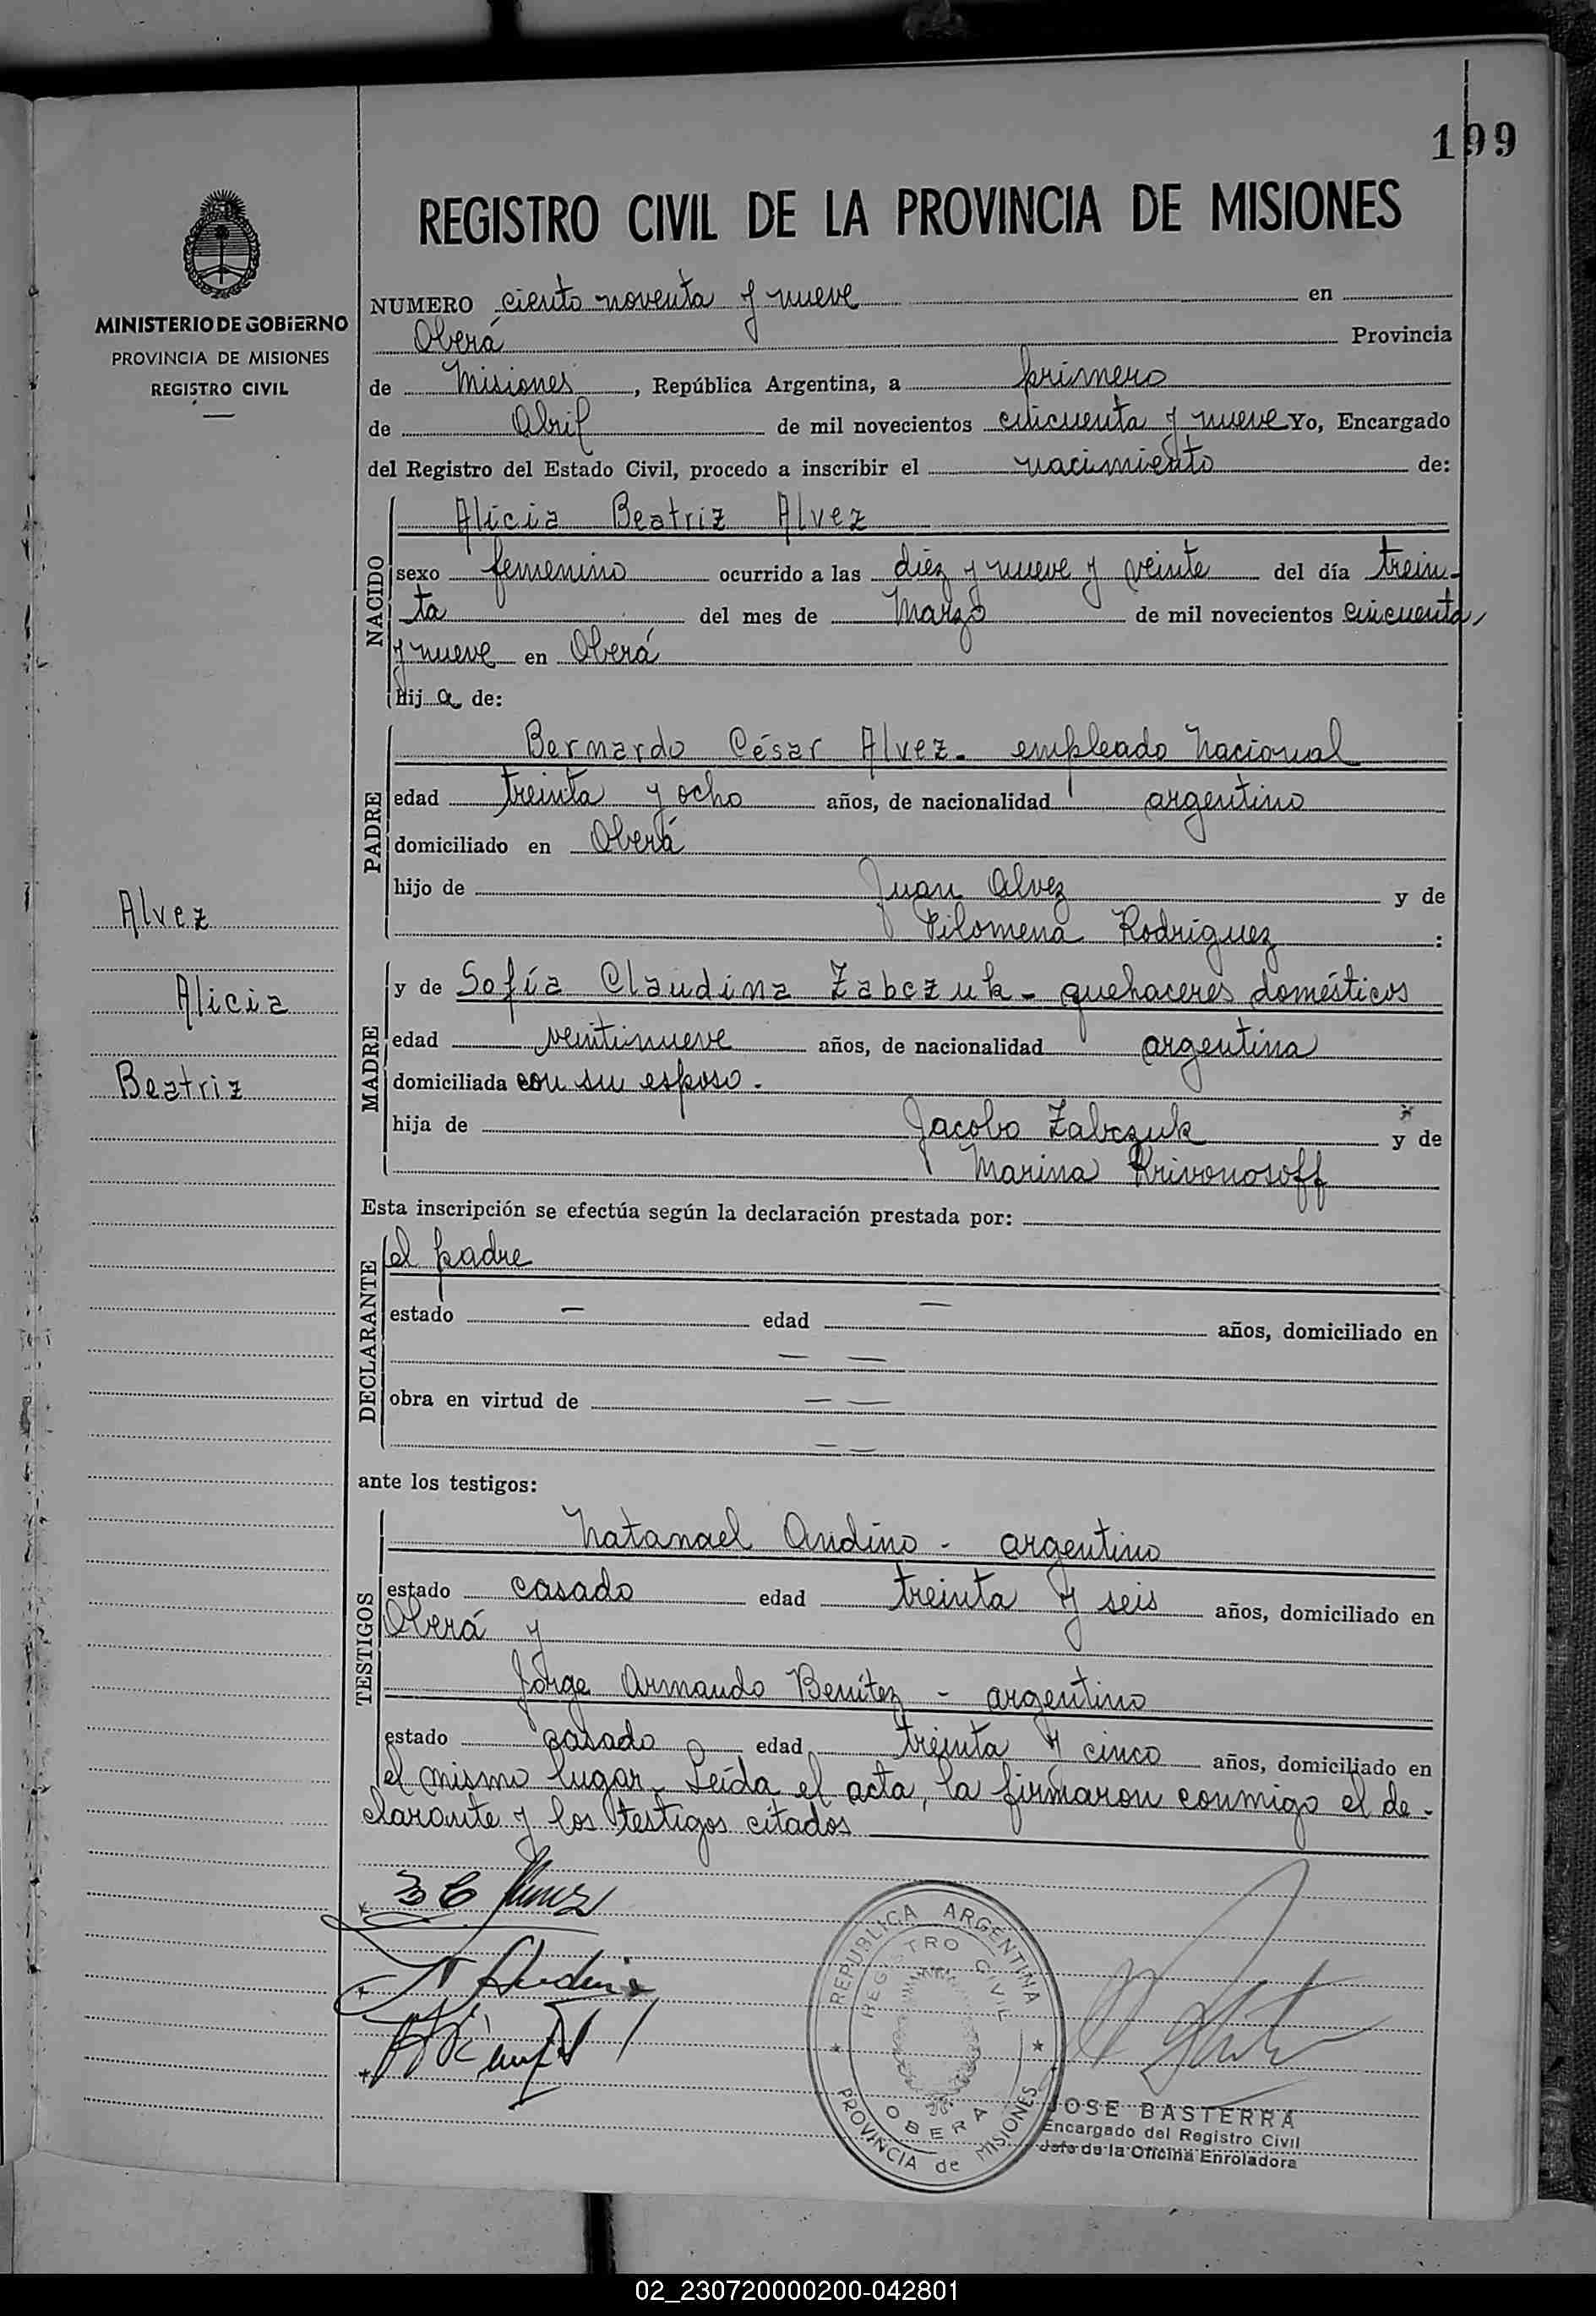 199
REGISTRO CIVIL DE LA PROVINCIA DE MISIONES
MINISTERIO DE GOBIERNO
PROVINCIA DE MISIONES
REGISTRO CIVIL
NUMERO ciento noventa y nueve en
Oberá Provincia
de Misiones, República Argentina, a primero
de Abril de mil novecientos cincuenta y nueve Yo, Encargado
del Registro del Estado Civil, procedo a inscribir el nacimiento de:
NACIDO
Alicia Beatriz Alvez
sexo femenino ocurrido a las diez y nueve y veinte del día trein-
ta del mes de Marzo de mil novecientos cincuenta
y nueve en Oberá
hija de:
PADRE
Bernardo César Alvez - empleado Nacional
edad treinta y ocho años, de nacionalidad argentino
domiciliado en Oberá
hijo de Juan Alvez y de
Filomena Rodríguez :
MADRE
y de Sofía Claudina Zabczuk - quehaceres domésticos
edad veintinueve años, de nacionalidad argentina
domiciliada con su esposo.
hija de Jacobo Zabczuk y de
Marina Krivonosoff
Alvez
Alicia
Beatriz
Esta inscripción se efectúa según la declaración prestada por:
DECLARANTE
el padre
estado — edad — años, domiciliado en
— —
obra en virtud de — —
— —
ante los testigos:
TESTIGOS
Natanael Andino - argentino
estado casado edad treinta y seis años, domiciliado en
Oberá y
Jorge Armando Benítez - argentino
estado casado edad treinta y cinco años, domiciliado en
el mismo lugar. Leída el acta, la firmaron conmigo el de-
clarante y los testigos citados
REPUBLICA ARGENTINA
REGISTRO CIVIL
OBERA
PROVINCIA de MISIONES
JOSE BASTERRA
Encargado del Registro Civil
Jefe de la Oficina Enroladora
02_230720000200-042801